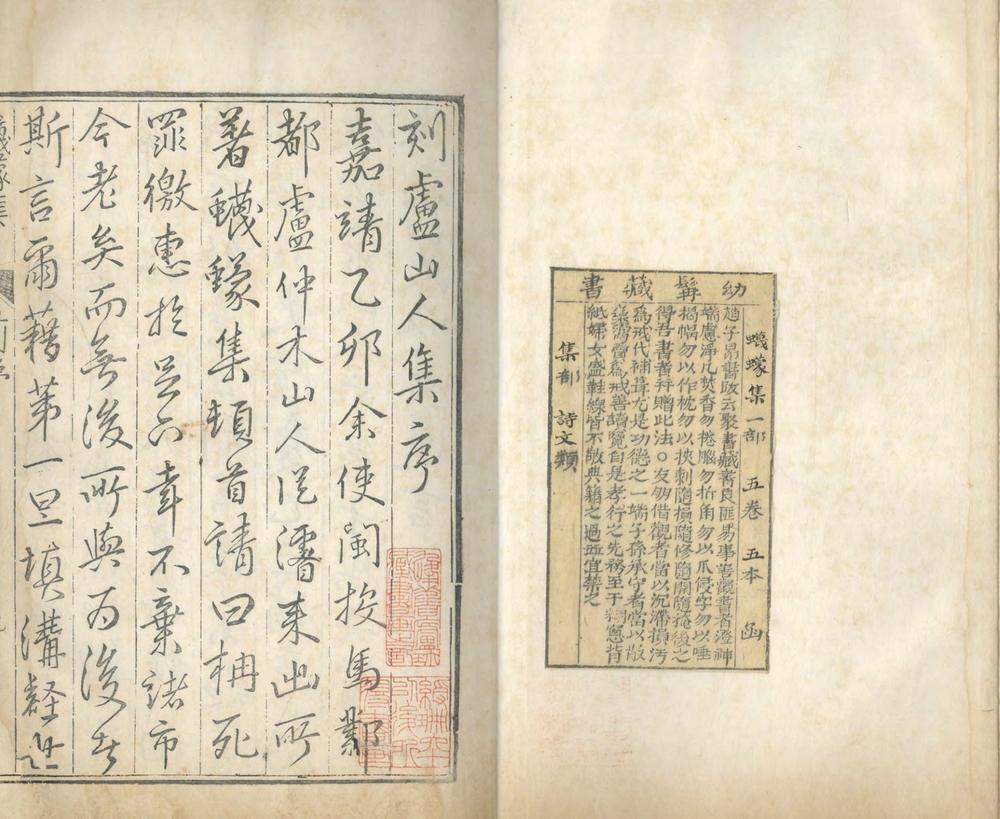 幼髯藏書
蠛蠓集一部 五卷 五本 函
趙子昂書跋云聚書藏書良匪易事善觀書者澄神
端慮淨几焚香勿捲腦勿折角勿以爪侵字勿以唾
揭幅勿以作枕勿以挾刺隨損隨修隨開隨掩後之
得吾書者并贈此法○友朋借觀者當以沉滯損污
為戒代補葺尤是功德之一端子孫承守者當以散
為戒善讀覽自是孝行之先務至于窗背
紙婦女盛鞋線皆不敬典籍之過並宜禁之
集部 詩文類
刻盧山人集序
嘉靖乙卯余使閩按馬鄴
都盧仲木山人從濬来出所
著蠛蠓集頓首請曰柟死
罪徼惠於幸不棄諸市
今老矣而無後所與為後者
斯言爾藉苐一旦填溝壑